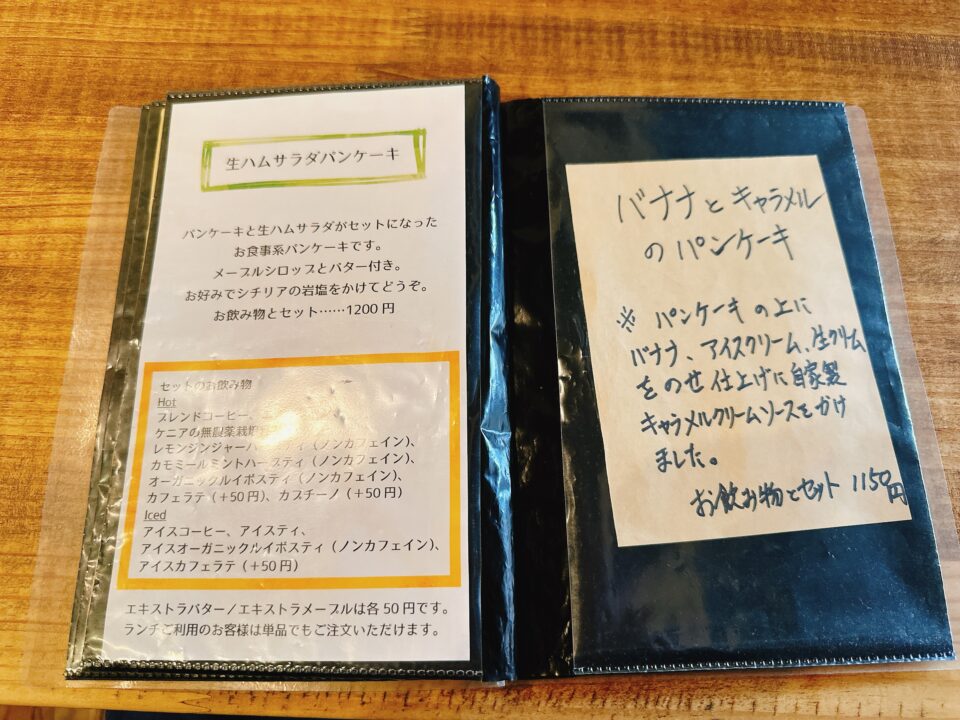 生ハムサラダパンケーキ
パンケーキと生ハムサラダがセットになった
お食事系パンケーキです。
メープルシロップとバター付き。
お好みでシチリアの岩塩をかけてどうぞ。
お飲み物とセット……1200円
セットのお飲み物
Hot
ブレンドコーヒー、
ケニアの無農薬栽培
レモンジンジャーハーブティ（ノンカフェイン）、
カモミールミントハーブティ（ノンカフェイン）、
オーガニックルイボスティ（ノンカフェイン）、
カフェラテ（＋50円）、カプチーノ（＋50円）
Iced
アイスコーヒー、アイスティ、
アイスオーガニックルイボスティ（ノンカフェイン）、
アイスカフェラテ（＋50円）
エキストラバター／エキストラメープルは各50円です。
ランチご利用のお客様は単品でもご注文いただけます。
バナナとキャラメル
のパンケーキ
※ パンケーキの上に
バナナ、アイスクリーム、生クリーム
をのせ仕上げに自家製
キャラメルクリームソースをかけ
ました。
お飲み物とセット 1150円